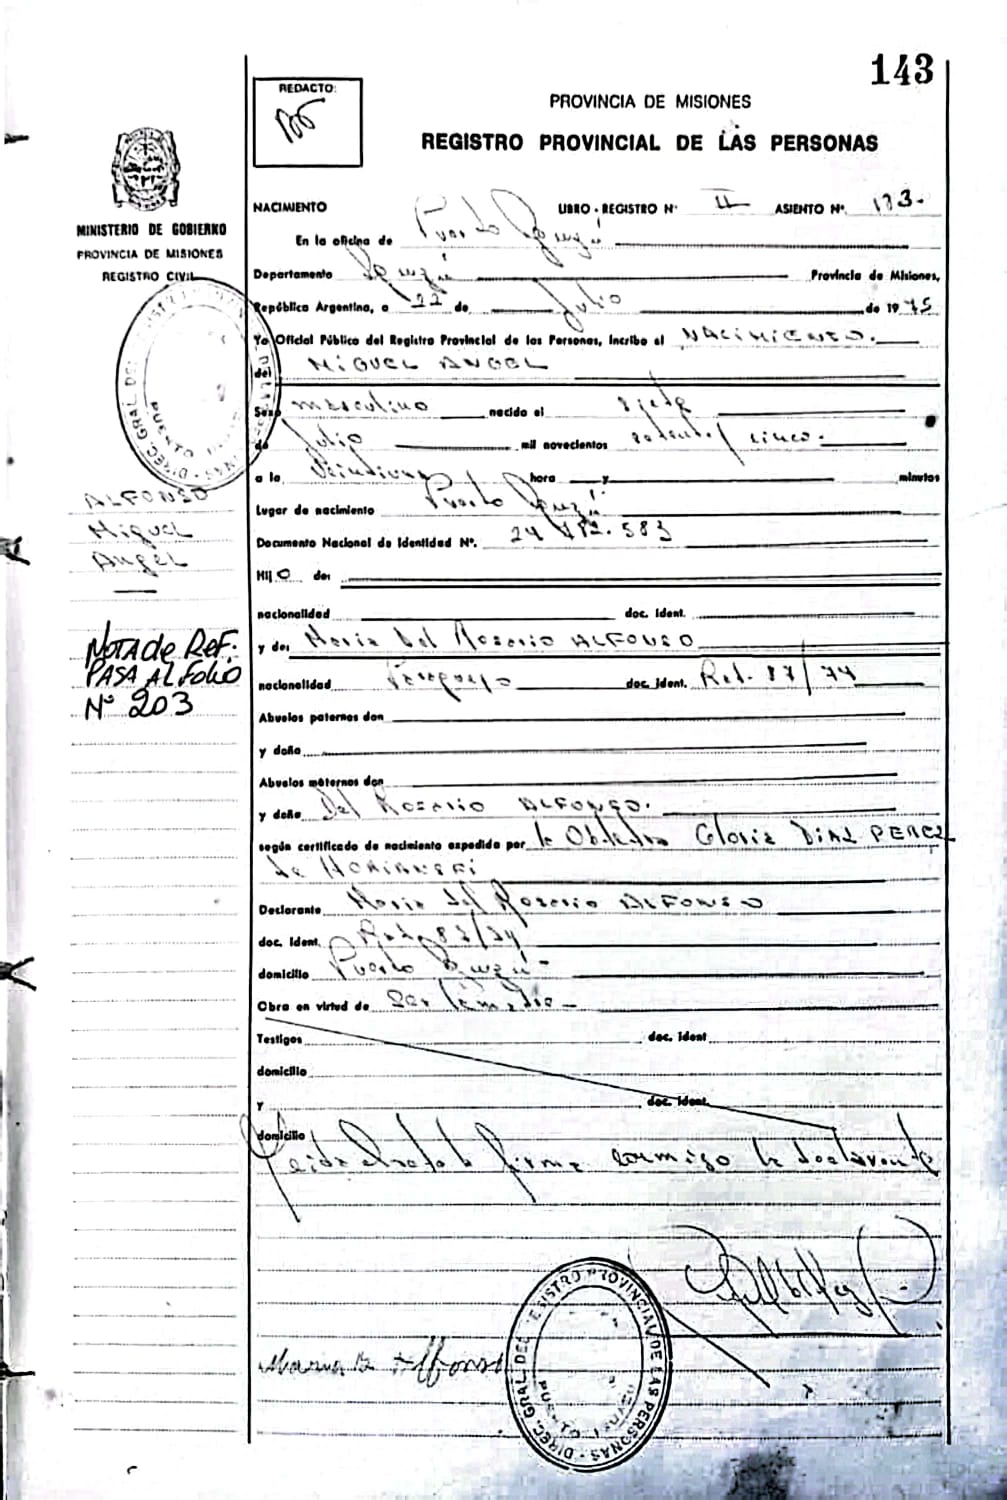 143
REDACTO:
PROVINCIA DE MISIONES
REGISTRO PROVINCIAL DE LAS PERSONAS
MINISTERIO DE GOBIERNO
PROVINCIA DE MISIONES
REGISTRO CIVIL
NACIMIENTO LIBRO - REGISTRO Nº II ASIENTO Nº.
En la oficina de Puerto Iguazú
Departamento Iguazú Provincia de Misiones,
República Argentina, a 22 de Julio de 1975
Yo Oficial Público del Registro Provincial de las Personas, Incribo el NACIMIENTO.
del MIGUEL ANGEL
Sexo masculino nacido el siete
de Julio mil novecientos setenta y cinco.
a la hora y minutos
Lugar de nacimiento Puerto Iguazú
Documento Nacional de Identidad Nº. 24 583
Hijo de:
nacionalidad doc. Ident.
y de: Maria Del Rosario ALFONSO
nacionalidad Paraguaya doc. Ident. 87/74
Abuelos paternos don
y doña
Abuelos maternos don
y doña Del Rosario ALFONSO.
según certificado de nacimiento expedida por la Obstetra Gloria DIAZ PEREZ
de
Declarante Maria del Rosario ALFONSO
doc. Ident.
domicilio Puerto Iguazú
Obra en virtud de ser la madre
Testigos doc. ident
domicilio
y doc. ident.
domicilio
Leida el acta la firma conmigo la declarante
ALFONSO
Miguel
Angel
NOTA de REF.
PASA AL Folio
Nº 203
Maria R Alfonso
DIREC. GRAL. DEL REGISTRO PROVINCIAL DE LAS PERSONAS
PUERTO IGUAZU